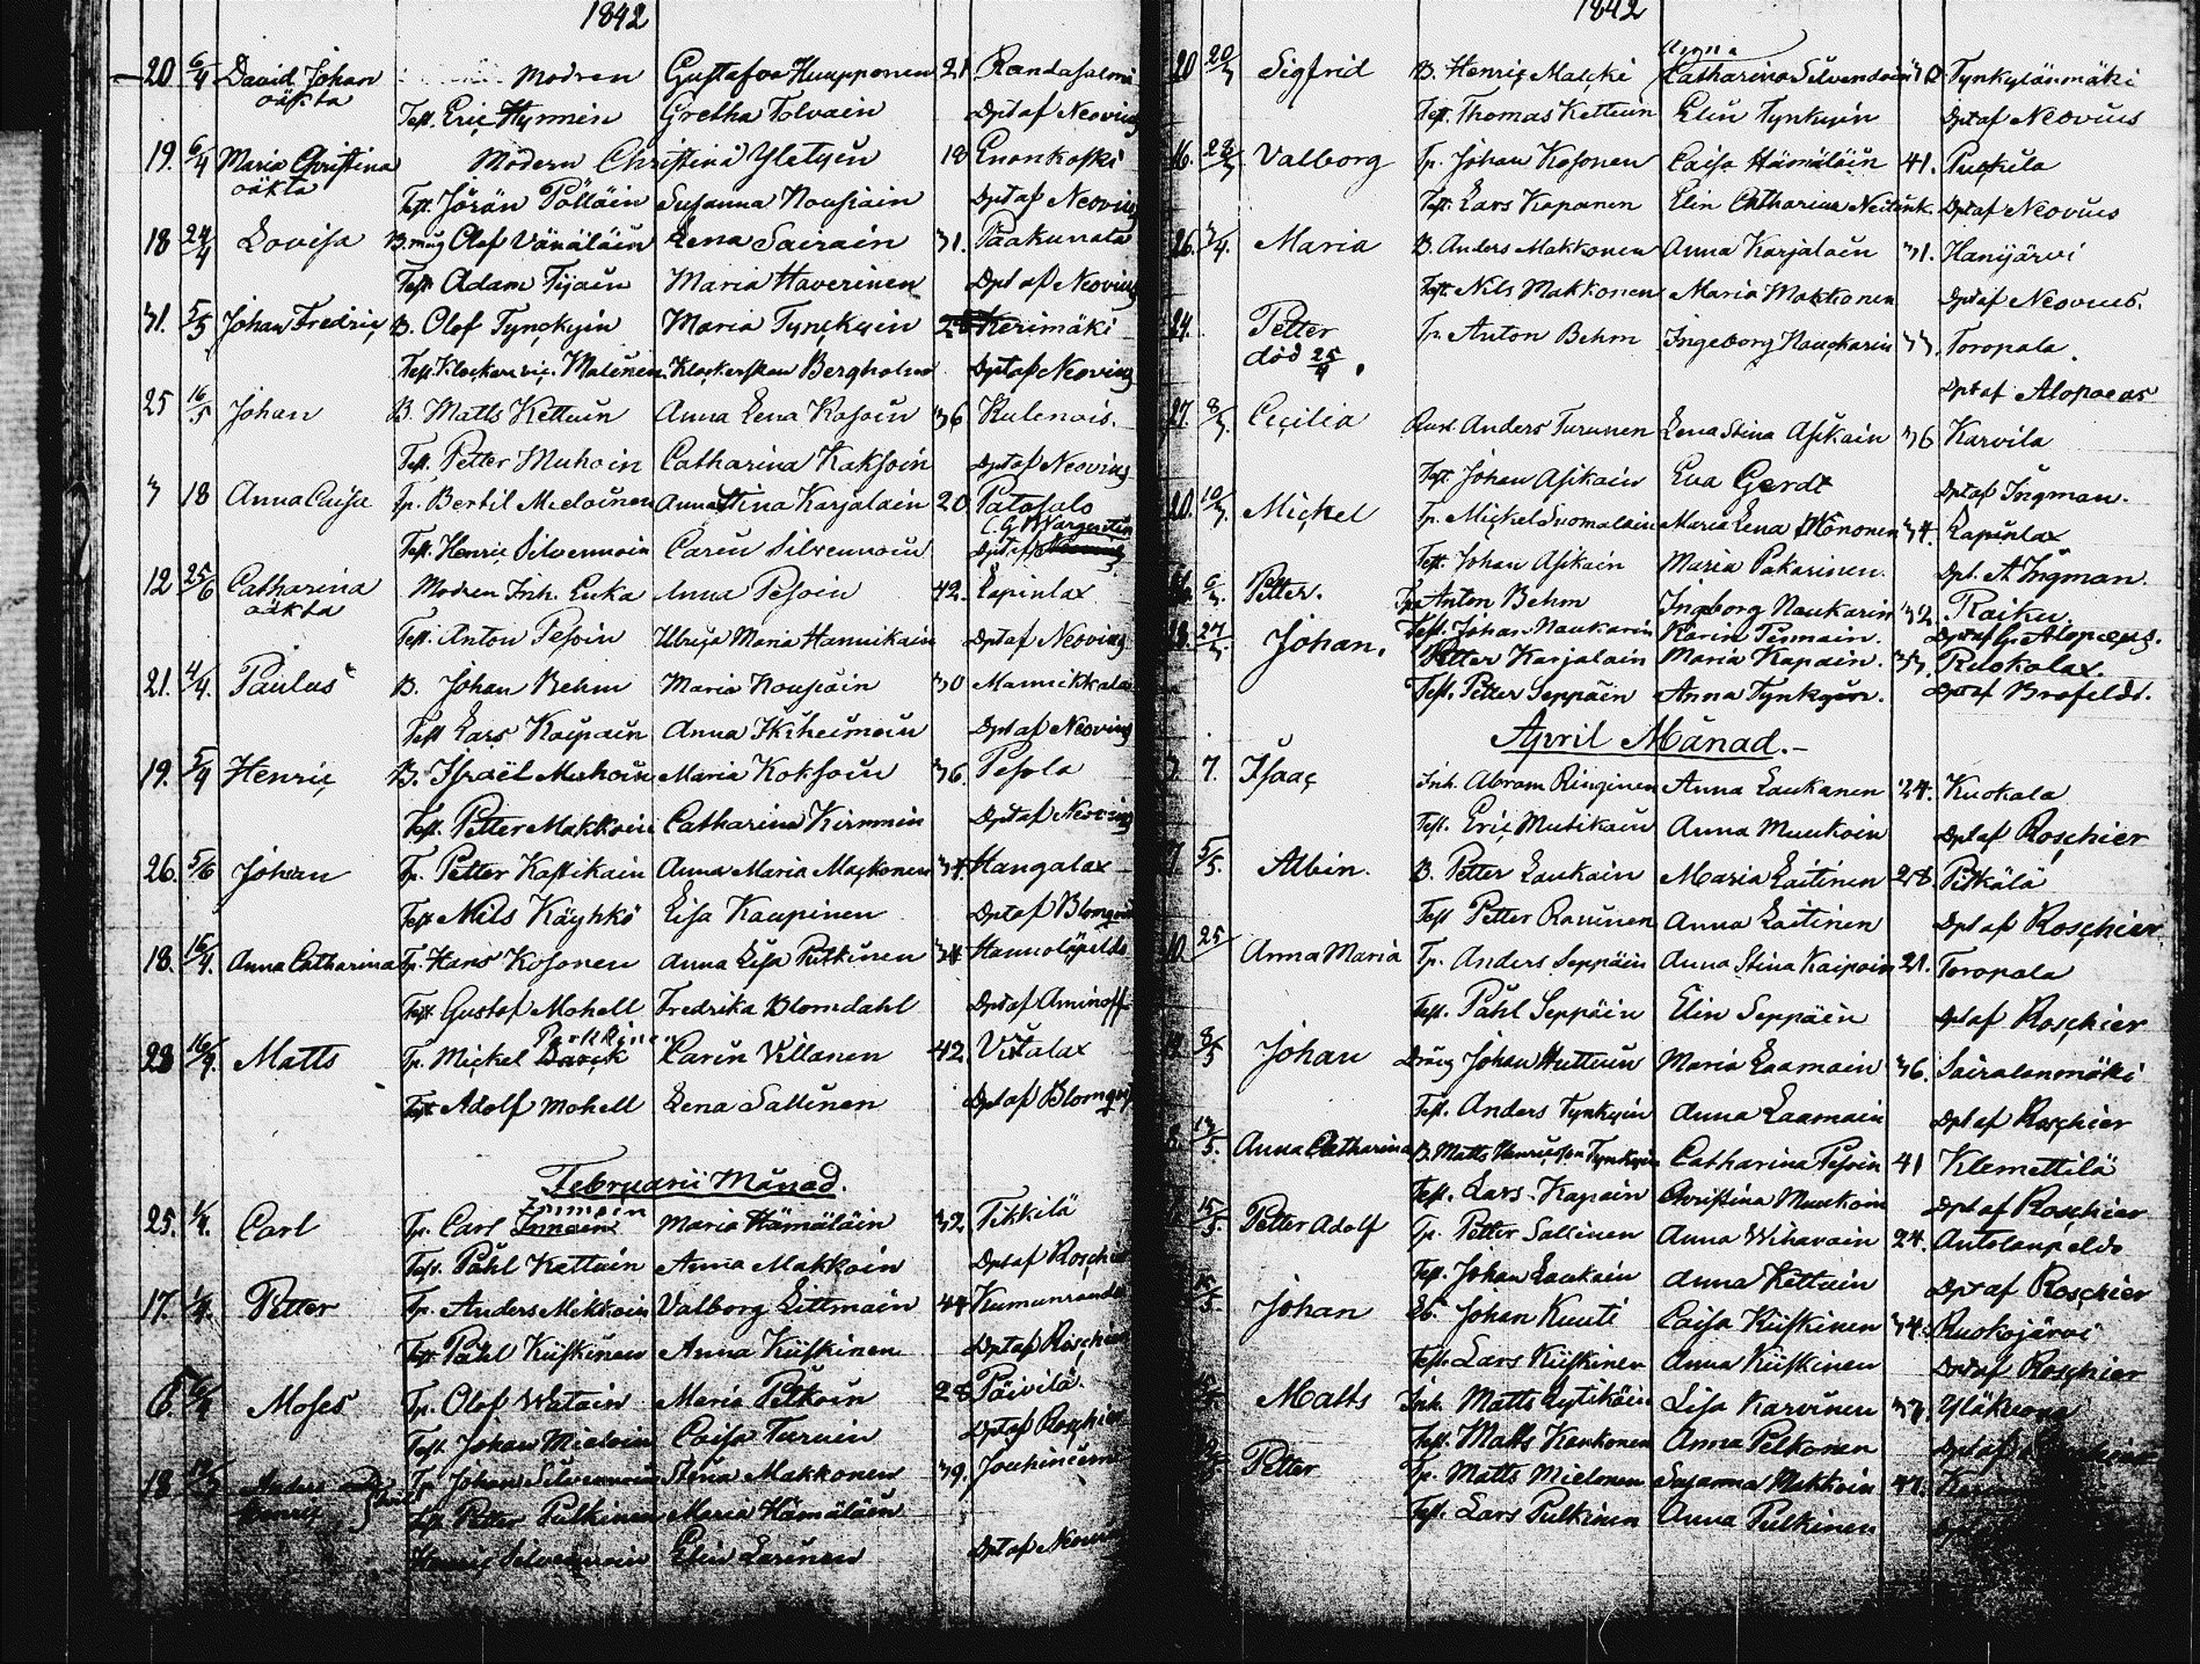 1842
20 6/4 David Johan Modren Gustafva Huupponen 21 Randasalmi
oäkta Test. Eric Hynnin Gretha Tolvain Dpt af Neovius
19. 6/4 Maria Christina Modern Christina Yletyin 18 Enonkoski
oäkta Test. Jöran Pölläin Susanna Nousiain Dpt af Neovius
18 24/4 Lovisa B.mug Olof Vänäläin Lena Sairain 31. Paakunala
Test. Adam Tijain Maria Haverinen Dpt af Neovius
31. 5/5 Johan Fredric B. Olof Tynckyin Maria Tynckyin Kerimäki
Test. Malinen Klockerskan Bergholm Dpt af Neovius
25 16/5 Johan B. Matts Kettuin Anna Lena Kosoin 36 Kulenois.
Test. Petter Muhoin Catharina Kaksoin Dpt af Neovius
3 18 Anna Caisa Tp. Bertil Mieloinen Anna Stina Karjalain 20 Patasalo
Test. Henric Silvennoin Carin Silvennoin Dpt af G. Wargentin
12 25/6 Catharina Modren Inh. Enka Anna Pesoin 42. Lapinlax
oäkta Test. Anton Pesoin Ulrica Maria Hannikain Dpt af Neovius
21. 4/4. Paulus B. Johan Behm Maria Nousiain 30 Mannikkala
Test Lars Kaipain Anna Ikiheimoin Dpt af Neovius
19. 5/4 Henric B. Israël Muhoin Maria Koksoin 36. Pesola
Test. Petter Makkoin Catharina Kirmmin Dpt af Neovius
26. 5/6 Johan Tp. Petter Kastikain Anna Maria Mackonen 34. Hangalax
Test Nils Käyhkö Lisa Kaupinen Dpt af Blomqvist
18. 15/4. Anna Catharina Tp. Hans Kosonen Anna Lisa Putkinen 34
Test. Gustaf Mohell Fredrika Blomdahl Dpt af Aminoff
Parkkinen
28 16/4. Matts Tp. Mickel Carin Villanen 42. Vitalax
Test Adolf Mohell Lena Sallinen Dpt af Blomqvist
Februarii Månad.
25. 1/4. Carl Tp. Carl Maria Hämäläin 32 Tikkilä
Test. Påhl Kettuin Anna Makkoin Dpt af Roschier
17. 1/4. Petter Tp. Anders Mikkoin Valborg Littmain 44
Test Påhl Kiiskinen Anna Kiiskinen Dpt af Roschier
6. Moses Tp. Olof Watain Maria Petkoin 28 Päivilä.
Test. Johan Mieloin Caisa Turuin Dpt af Roschier
18. Anders Tp. Johan Silvennoin Stina Makkonen 39.
Henric Test. Petter Pulkinen Maria Hämäläin
Henric Silvennoin Elin Dpt af Neovius
1842
Anna
20 20/3 Sigfrid B. Henric Malcki Catharina Silvendoin Tynkylänmäki
Test. Thomas Kettuin Elin Tynkyin Dpt af Neovius
16. 28/3 Valborg Tp. Johan Kosonen Caisa Hämäläin 41. Puckula
Test. Lars Kapanen Elin Catharina Dpt af Neovius
26. 3/4. Maria B. Anders Makkonen Anna Karjalain 31. Hanijärvi
Test. Nils Makkonen Maria Makkonen Dpt af Neovius.
24. Petter Tp. Anton Behm Ingeborg Nauckarin 33. Toropala.
död 25/4. Dpt af Alopaeus
27. 8/3. Cecilia Anders Turunen Lena Stina Asikain 36 Karvila
Test. Johan Asikain Eva Gerdt Dpt af Ingman.
20. 10/3. Mickel Tp. Mickel Suomalain Maria Lena Mönonen 34. Lapinlax
Test. Johan Asikain Maria Pakarinen. Dpt. A Ingman.
Petter. Tp. Anton Behm Ingeborg Naukarin 32. Raiku.
Test. Johan Naukarin Karin Dpt af G. Alopæus.
18. 27/3. Johan. Petter Karjalain Maria Kapain. 33. Ruokolax.
Test. Petter Seppäin Anna Tynkyin. Dpt af Brofeldt.
April Månad.
3. 7. Isaac Inh. Abram Ringinen Anna Laukanen 24. Kuokala
Test. Eric Mutikain Anna Muukoin Dpt af Roschier
5/5. Albin. B. Petter Laukain Maria Laitinen 28. Pitkälä
Test Petter Rauinen Anna Laitinen Dpt af Roschier
10. 25/ Anna Maria Tp. Anders Seppäin Anna Stina Kaipain 21. Toropala
Test. Påhl Seppäin Elin Seppäin Dpt af Roschier
8/5 Johan Dräng Johan Huttuin Maria Laamain 36. Sairalanmäki
Test. Anders Tynkyin Anna Laamain Dpt af Roschier
8. 13/5. Anna Catharina B. Matts Henricsson Tynkyin Catharina Pesoin 41 Klemettilä
Test. Lars Kapain Christina Muukoin Dpt af Roschier
15/5. Petter Adolf Tp. Petter Sallinen Anna Wihavain 24.
Test. Johan Laukain Anna Kettuin Dpt af Roschier
15/5. Johan Johan Kuuti Caisa Kiiskinen 34. Ruokojärvi
Test. Lars Kiiskinen Anna Kiiskinen Dpt af Roschier
Matts Inh. Matts Lytikäin Lisa Karvinen Yläkuona
Test. Matts Kaukonen Anna Pelkonen Dpt af
Petter Tp. Matts Mielonen Susanna Makkoin 41.
Test. Lars Pulkinen Anna Pulkinen